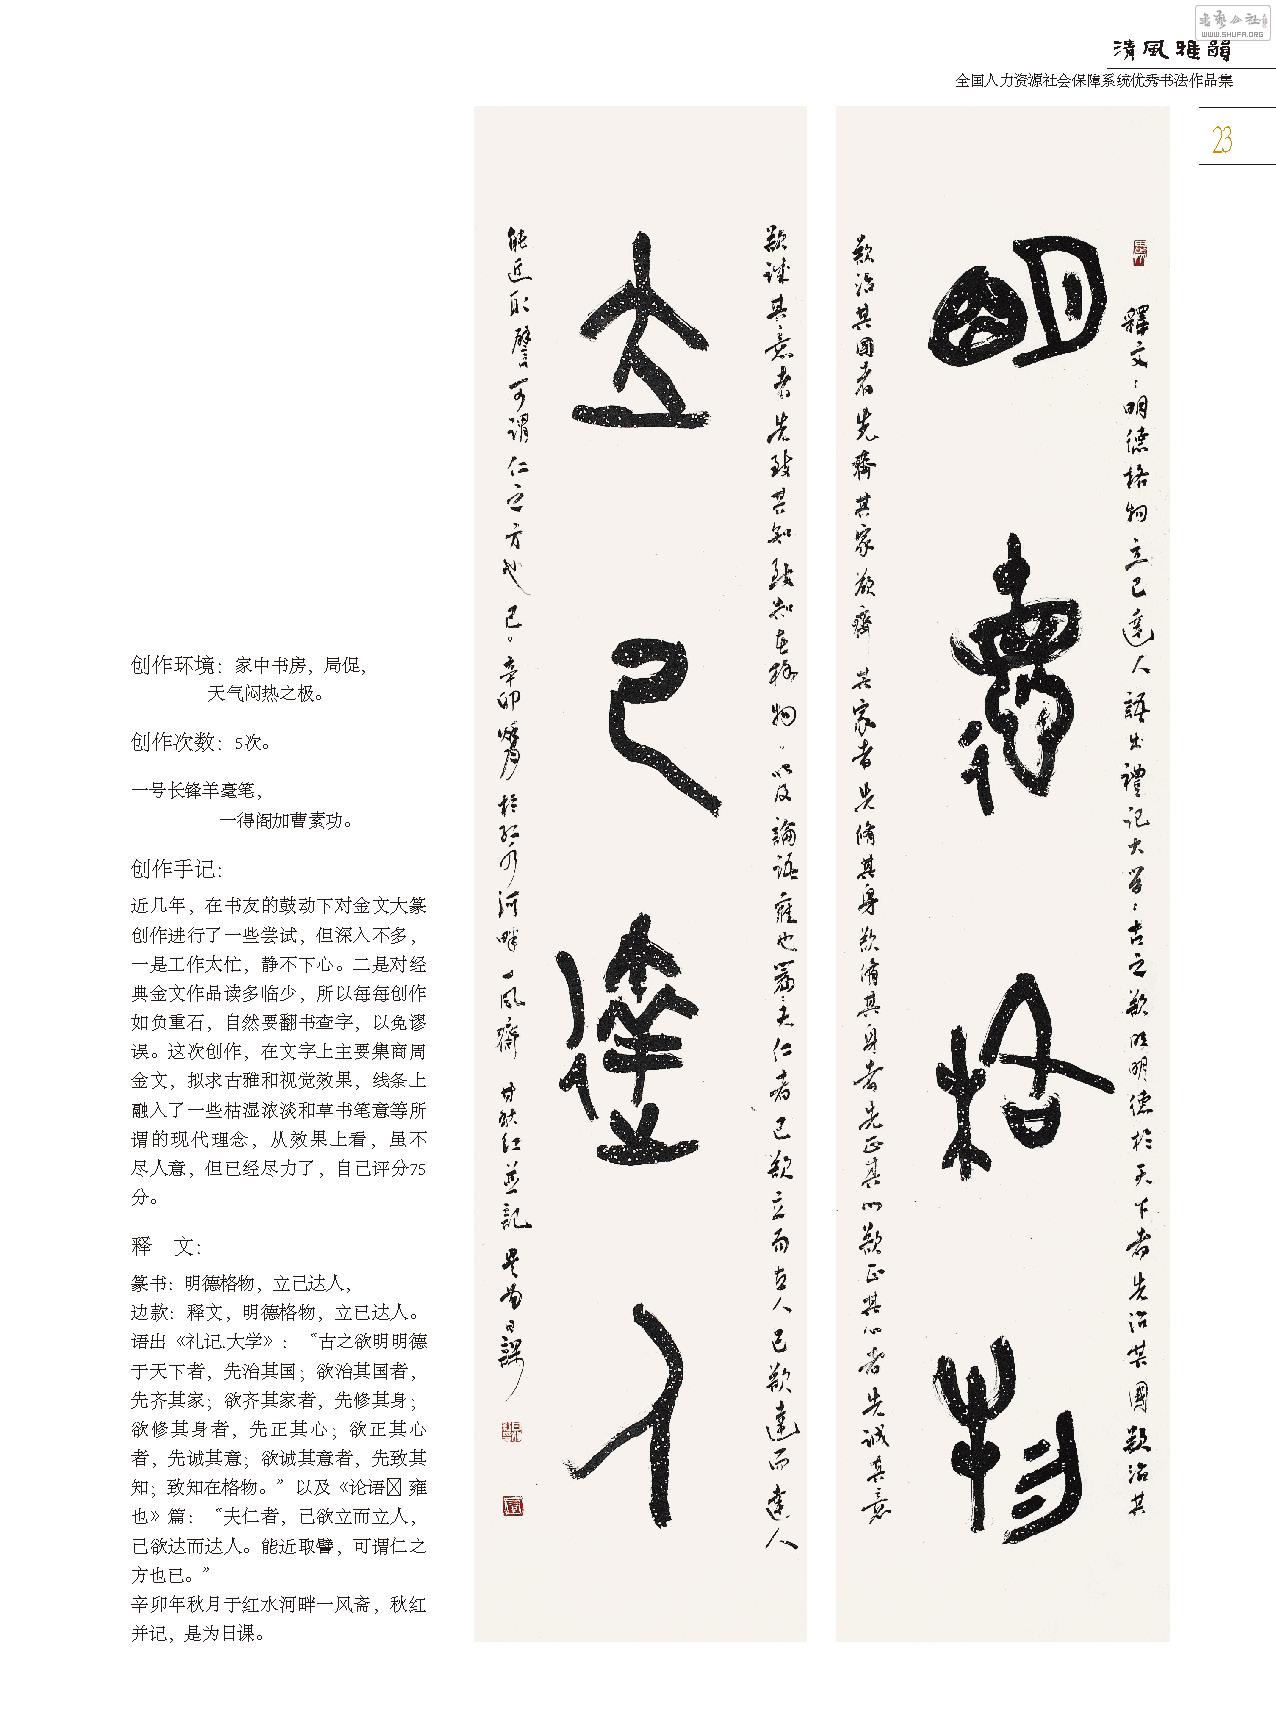 书艺公社
WWW.SHUFA.ORG
清風雅韻
全国人力资源社会保障系统优秀书法作品集
23
明德格物
立己達人
釋文：明德格物立己達人語出禮記大学：古之欲明明德於天下者先治其國欲治其
欲治其國者先齊其家欲齊其家者先脩其身欲脩其身者先正其心欲正其心者先诚其意
欲誠其意者先致其知致知在格物。以及論語雍也篇：夫仁者己欲立而立人己欲達而達人
能近取譬可謂仁之方也已。辛卯 於红水河畔一风齋 秋红並記是為日課
创作环境：家中书房，局促，
天气闷热之极。
创作次数：5次。
一号长锋羊毫笔，
一得阁加曹素功。
创作手记：
近几年，在书友的鼓动下对金文大篆
创作进行了一些尝试，但深入不多，
一是工作太忙，静不下心。二是对经
典金文作品读多临少，所以每每创作
如负重石，自然要翻书查字，以免谬
误。这次创作，在文字上主要集商周
金文，拟求古雅和视觉效果，线条上
融入了一些枯湿浓淡和草书笔意等所
谓的现代理念，从效果上看，虽不
尽人意，但已经尽力了，自己评分75
分。
释　文：
篆书：明德格物，立己达人，
边款：释文，明德格物，立已达人。
语出《礼记.大学》：“古之欲明明德
于天下者，先治其国；欲治其国者，
先齐其家；欲齐其家者，先修其身；
欲修其身者，先正其心；欲正其心
者，先诚其意；欲诚其意者，先致其
知；致知在格物。”以及《论语 雍
也》篇：“夫仁者，己欲立而立人，
已欲达而达人。能近取譬，可谓仁之
方也已。”
辛卯年秋月于红水河畔一风斋，秋红
并记，是为日课。